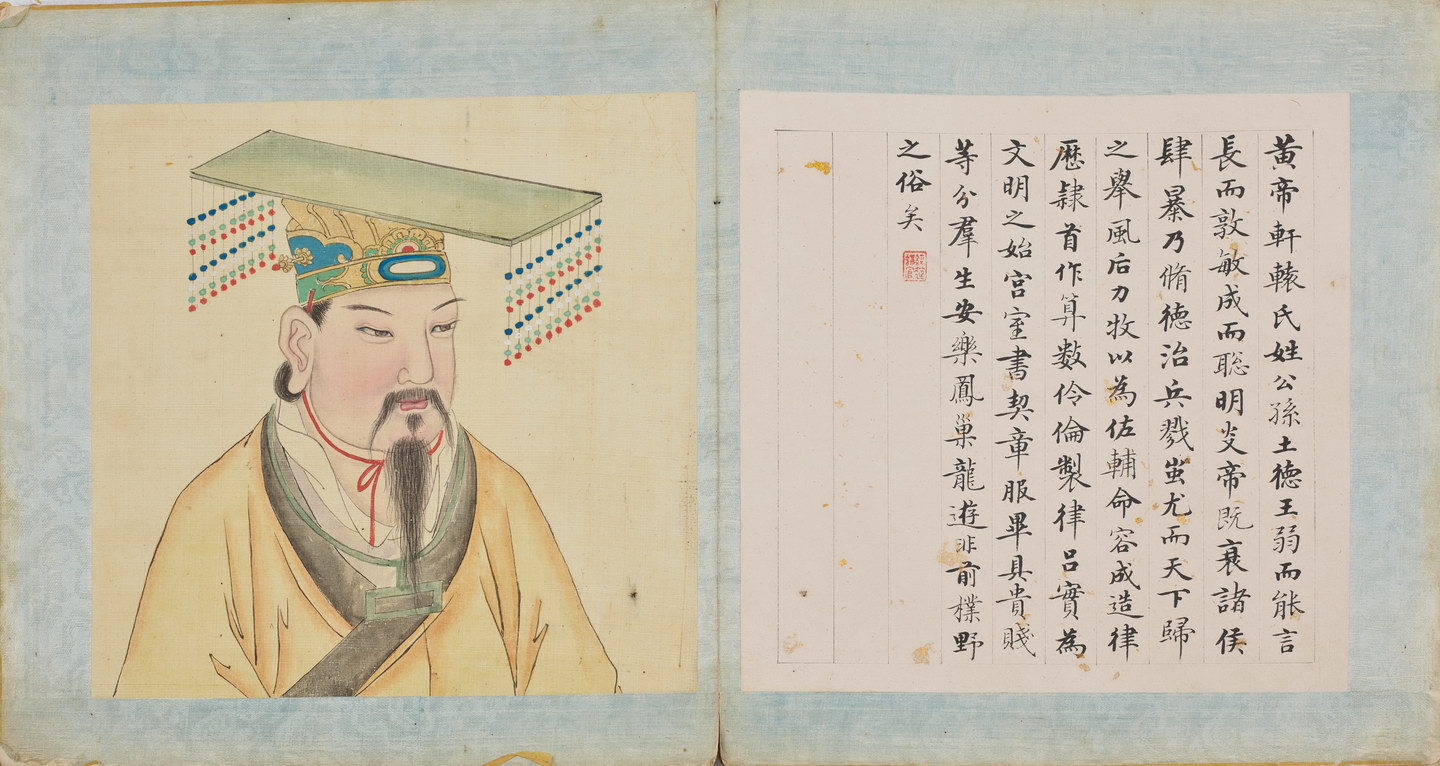 黃帝軒轅氏姓公孫土德王弱而能言
長而敦敏成而聡明炎帝既衰諸侯
肆暴乃脩德治兵戮蚩尤而天下歸
之舉風后力牧以為佐輔命容成造律
歷隷首作算數伶倫製律呂實為
文明之始宮室書契章服畢具貴賤
等分羣生安樂鳳巢龍遊非前樸野
之俗矣